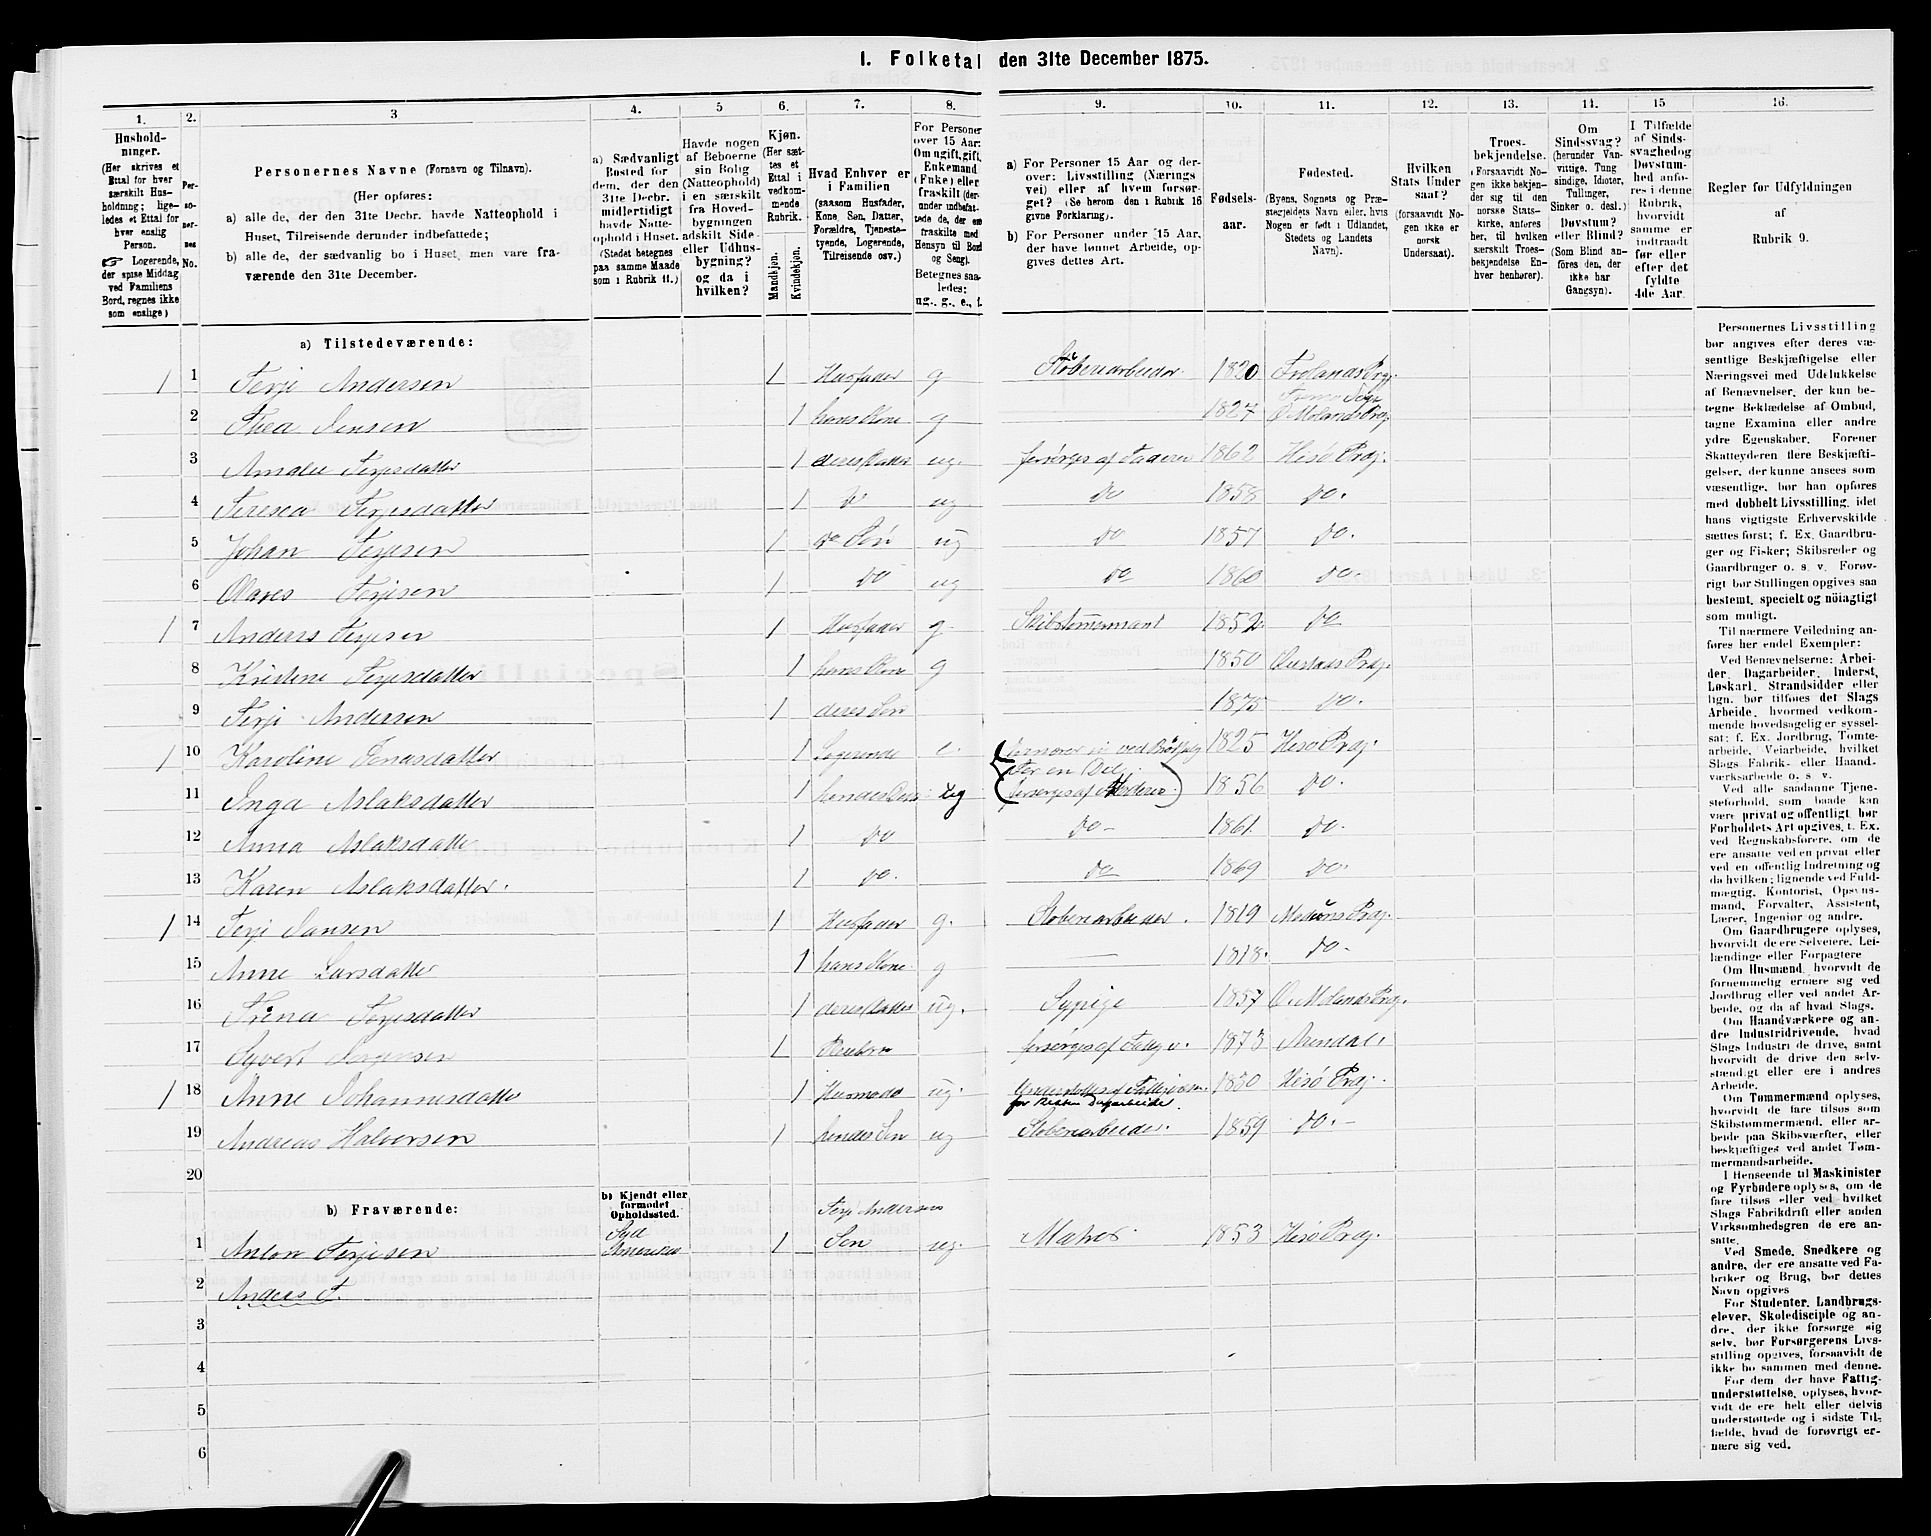 1. Folketal den 31te December 1875.
1. 2. 3 4. 5 6. 7. 8. 9. 10. 11. 12. 13. 14. 15 16.
Hushold-
ninger.
(Her skrives et
Ettal for hver
særskilt Hus-
holdning; lige-
ledes et Ettal for
hver enslig
Person.
Logerende,
der spise Middag
ved Familiens
Bord, regnes ikke
som enslige)
Per-
so-
ner-
nes
No.
Personernes Navne (Fornavn og Tilnavn).
(Her opføres:
a) alle de, der den 31te Decbr. havde Natteophold i
Huset, Tilreisende derunder indbefattede;
b) alle de, der sædvanlig bo i Huset, men vare fra-
værende den 31te December.
a) Sædvanligt
Bosted for
dem, der den
31te Decbr.
midlertidigt
havde Natte-
ophold i Huset.
(Stedet betegnes
paa samme Maade
som i Rubrik 11.)
Havde nogen
af Beboerne
sin Bolig
(Natteophold)
i en særskilt
fra Hoved-
bygningen
adskilt Side-
eller Udhus-
bygning?
og da i
hvilken?
Kjøn.
(Her sæt-
tes et
Ettal i
vedkom-
mende
Rubrik.
Mandkjøn.
Kvindekjøn.
Hvad Enhver er
i Familien
(saasom Husfader,
Kone, Søn, Datter,
Forældre, Tjeneste-
tyende, Logerende,
Tilreisende osv.)
For Personer
over 15 Aar:
Om ugift, gift,
Enkemand
(Enke) eller
fraskilt (der-
under indbefat-
tede de, der ere
fraskilte med
Hensyn til Bord
og Seng).
Betegnes saa-
ledes:
ug., g., e., f.
a) For Personer 15 Aar og der-
over: Livsstilling (Nærings-
vei) eller af hvem forsør-
get? (Se herom den i Rubrik 16
givne Forklaring).
b) For Personer under 15 Aar,
der have lønnet Arbeide, op-
gives dettes Art.
Fødsels-
aar.
Fødested.
(Byens, Sognets og Præ-
stegjeldets Navn eller, hvis
Nogen er født i Udlandet,
Stedets og Landets
Navn).
Hvilken
Stats Under
saat?
(forsaavidt No-
gen ikke er
norsk
Undersaat).
Troes-
bekjendelse.
(Forsaavidt No-
gen ikke bekjen-
der sig til den
norske Stats-
kirke, anføres
her, til hvilken
særskilt Troes-
bekjendelse En-
hver henhører).
Om
Sindssvag?
(herunder Van-
vittige, Tung
sindige, Idioter,
Tullinger,
Sinker o. desl.)
Døvstum?
eller Blind?
(Som Blind an-
føres den, der
ikke har
Gangsyn).
I Tilfælde
af Sinds-
svaghed og
Døvstum-
hed anfø-
res i denne
Rubrik,
hvorvidt
samme er
indtraadt
før eller
efter det
fyldte
4de Aar.
Regler for Udfyldningen
af
Rubrik 9.
a) Tilstedeværende:
1 1 Terje Andersen 1 Husfader g Støberiarbeider 1820 Frolands Prgj.
2 Thea Jensen 1 hans Kone g 1827 Ø. Molands Prgj
3 Amalie Terjesdatter 1 deres Datter ug. forsørges af Faderen 1862 Hisø Prgj.
4 Teresea Terjesdatter 1 do ug do 1858 do.
5 Johan Terjesen 1 do Søn ug do 1857 do.
6 Olaves Terjesen 1 do ug do 1860 do.
1 7 Anders Terjesen 1 Husfader g. Skibstømmermand 1852 do
8 Kristine Terjesdatter 1 hans Kone g 1850 Øiestads Prgj.
9 Terje Andersen 1 deres Søn 1875 do.
1 10 Karoline Jonasdatter 1 Logerende e. ernærer si ved 1825 Hisø Prgj.
For en Del
11 Inga Aslaksdatter 1 hendes Datter ug forsørges af Moderen 1856 do.
12 Anna Aslaksdatter 1 do do 1861. do.
13 Karen Aslaksdatter. 1 do. do 1869 do.
1 14 Terje Jansen 1 Husfader g. Støberiarbeider. 1819 Prgj.
15 Anne Larsdatter 1 hans Kone g 1818. do
16 Trina Terjesdatter 1 deres Datter ug. Sypige 1857 Ø. Molands Prgj.
17 Syvert Jørgensen 1 Pleiebarn forsørges af Fattigv. 1873 Arendal.
1 18 Anne Johannesdatter 1 Husmoder ug. Understøttes af Fattigvæsen. 1830 Hisø Prgj.
for Resten Dagarbeide.
19 Andreas Halvorsen 1 hendes Søn ug Støberiarbeider. 1859 do.
20
b) Fraværende:
b) Kjendt eller
formodet
Opholdssted.
Terje Andersens
1 Anton Terjesen Syd Amerika 1 Søn ug. Matros 1853 Hisø Prgj.
2 Anders T.
3
4
5
6
Personernes Livsstilling
bør angives efter deres væ-
sentlige Beskjæftigelse eller
Næringsvei med Udelukkelse
af Benævnelser, der kun be-
tegne Beklædelse af Ombud,
tagne Examina eller andre
ydre Egenskaber. Forener
Skatteyderen flere Beskjæfti-
gelser, der kunne ansees som
væsentlige, bør han opføres
med dobbelt Livsstilling, idet
hans vigtigste Erhvervskilde
sættes først; f. Ex. Gaardbru-
ger og Fisker; Skibsreder og
Gaardbruger o. s. v. Forøv-
rigt bør Stillingen opgives saa
bestemt, specielt og nøiagtigt
som muligt.
Til nærmere Veiledning an-
føres her endel Exempler:
Ved Benævnelserne: Arbei-
der, Dagarbeider, Inderst,
Løskarl, Strandsidder eller
lign. bør tilføies det Slags
Arbeide, hvormed vedkom-
mende hovedsagelig er syssel-
sat; f. Ex. Jordbrug, Tomte-
arbeide, Veiarbeide, hvilket
Slags Fabrik- eller Haand-
værksarbeide o. s. v.
Ved alle saadanne Tjene-
steforhold, som baade kan
være privat og offentligt, bør
Forholdets Art opgives, t. Ex.
ved Regnskabsførere, om de
ere ansatte ved en privat eller
ved en offentlig Indretning og
da hvilken; lignende ved Fuld-
mægtig, Kontorist, Opsyns-
mand, Forvalter, Assistent,
Lærer, Ingeniør og andre.
Om Gaardbrugere oplyses,
hvorvidt de ere Selveiere, Lei-
lændinge eller Forpagtere
Om Husmænd, hvorvidt de
fornemmelig ernære sig ved
Jordbrug eller ved andet Ar-
beide, og da af hvad Slags.
Om Haandværkere og an-
dre Industridrivende, hvad
Slags Industri de drive, samt
hvorvidt de drive den selv-
stændigt eller ere i andres
Arbeide.
Om Tømmermænd oplyses,
hvorvidt de fare tilsøs som
Skibstømmermænd, eller ar-
beide paa Skibsværfter, eller
beskjæftiges ved andet Tøm-
mermandsarbeide.
I Henseende til Maskinister
og Fyrbødere oplyses, om de
fare tilsøs eller ved hvilket
Slags Fabrikdrift eller anden
Virksomhedsgren de ere an-
satte.
Ved Smede, Snedkere og
andre, der ere ansatte ved Fa-
briker og Brug, bør dettes
Navn opgives
For Studenter, Landbrugs-
elever, Skoledisciple og an-
dre, der ikke forsørge sig
selv, bør Forsørgerens Livs-
stilling opgives, forsaavidt de
ikke bo sammen med denne.
For dem, der have Fattig-
understøttelse, oplyses, hvor-
vidt de ere helt eller delvis
understøttede og i sidste Til-
fælde, hvad de forøvrigt er-
nære sig ved.